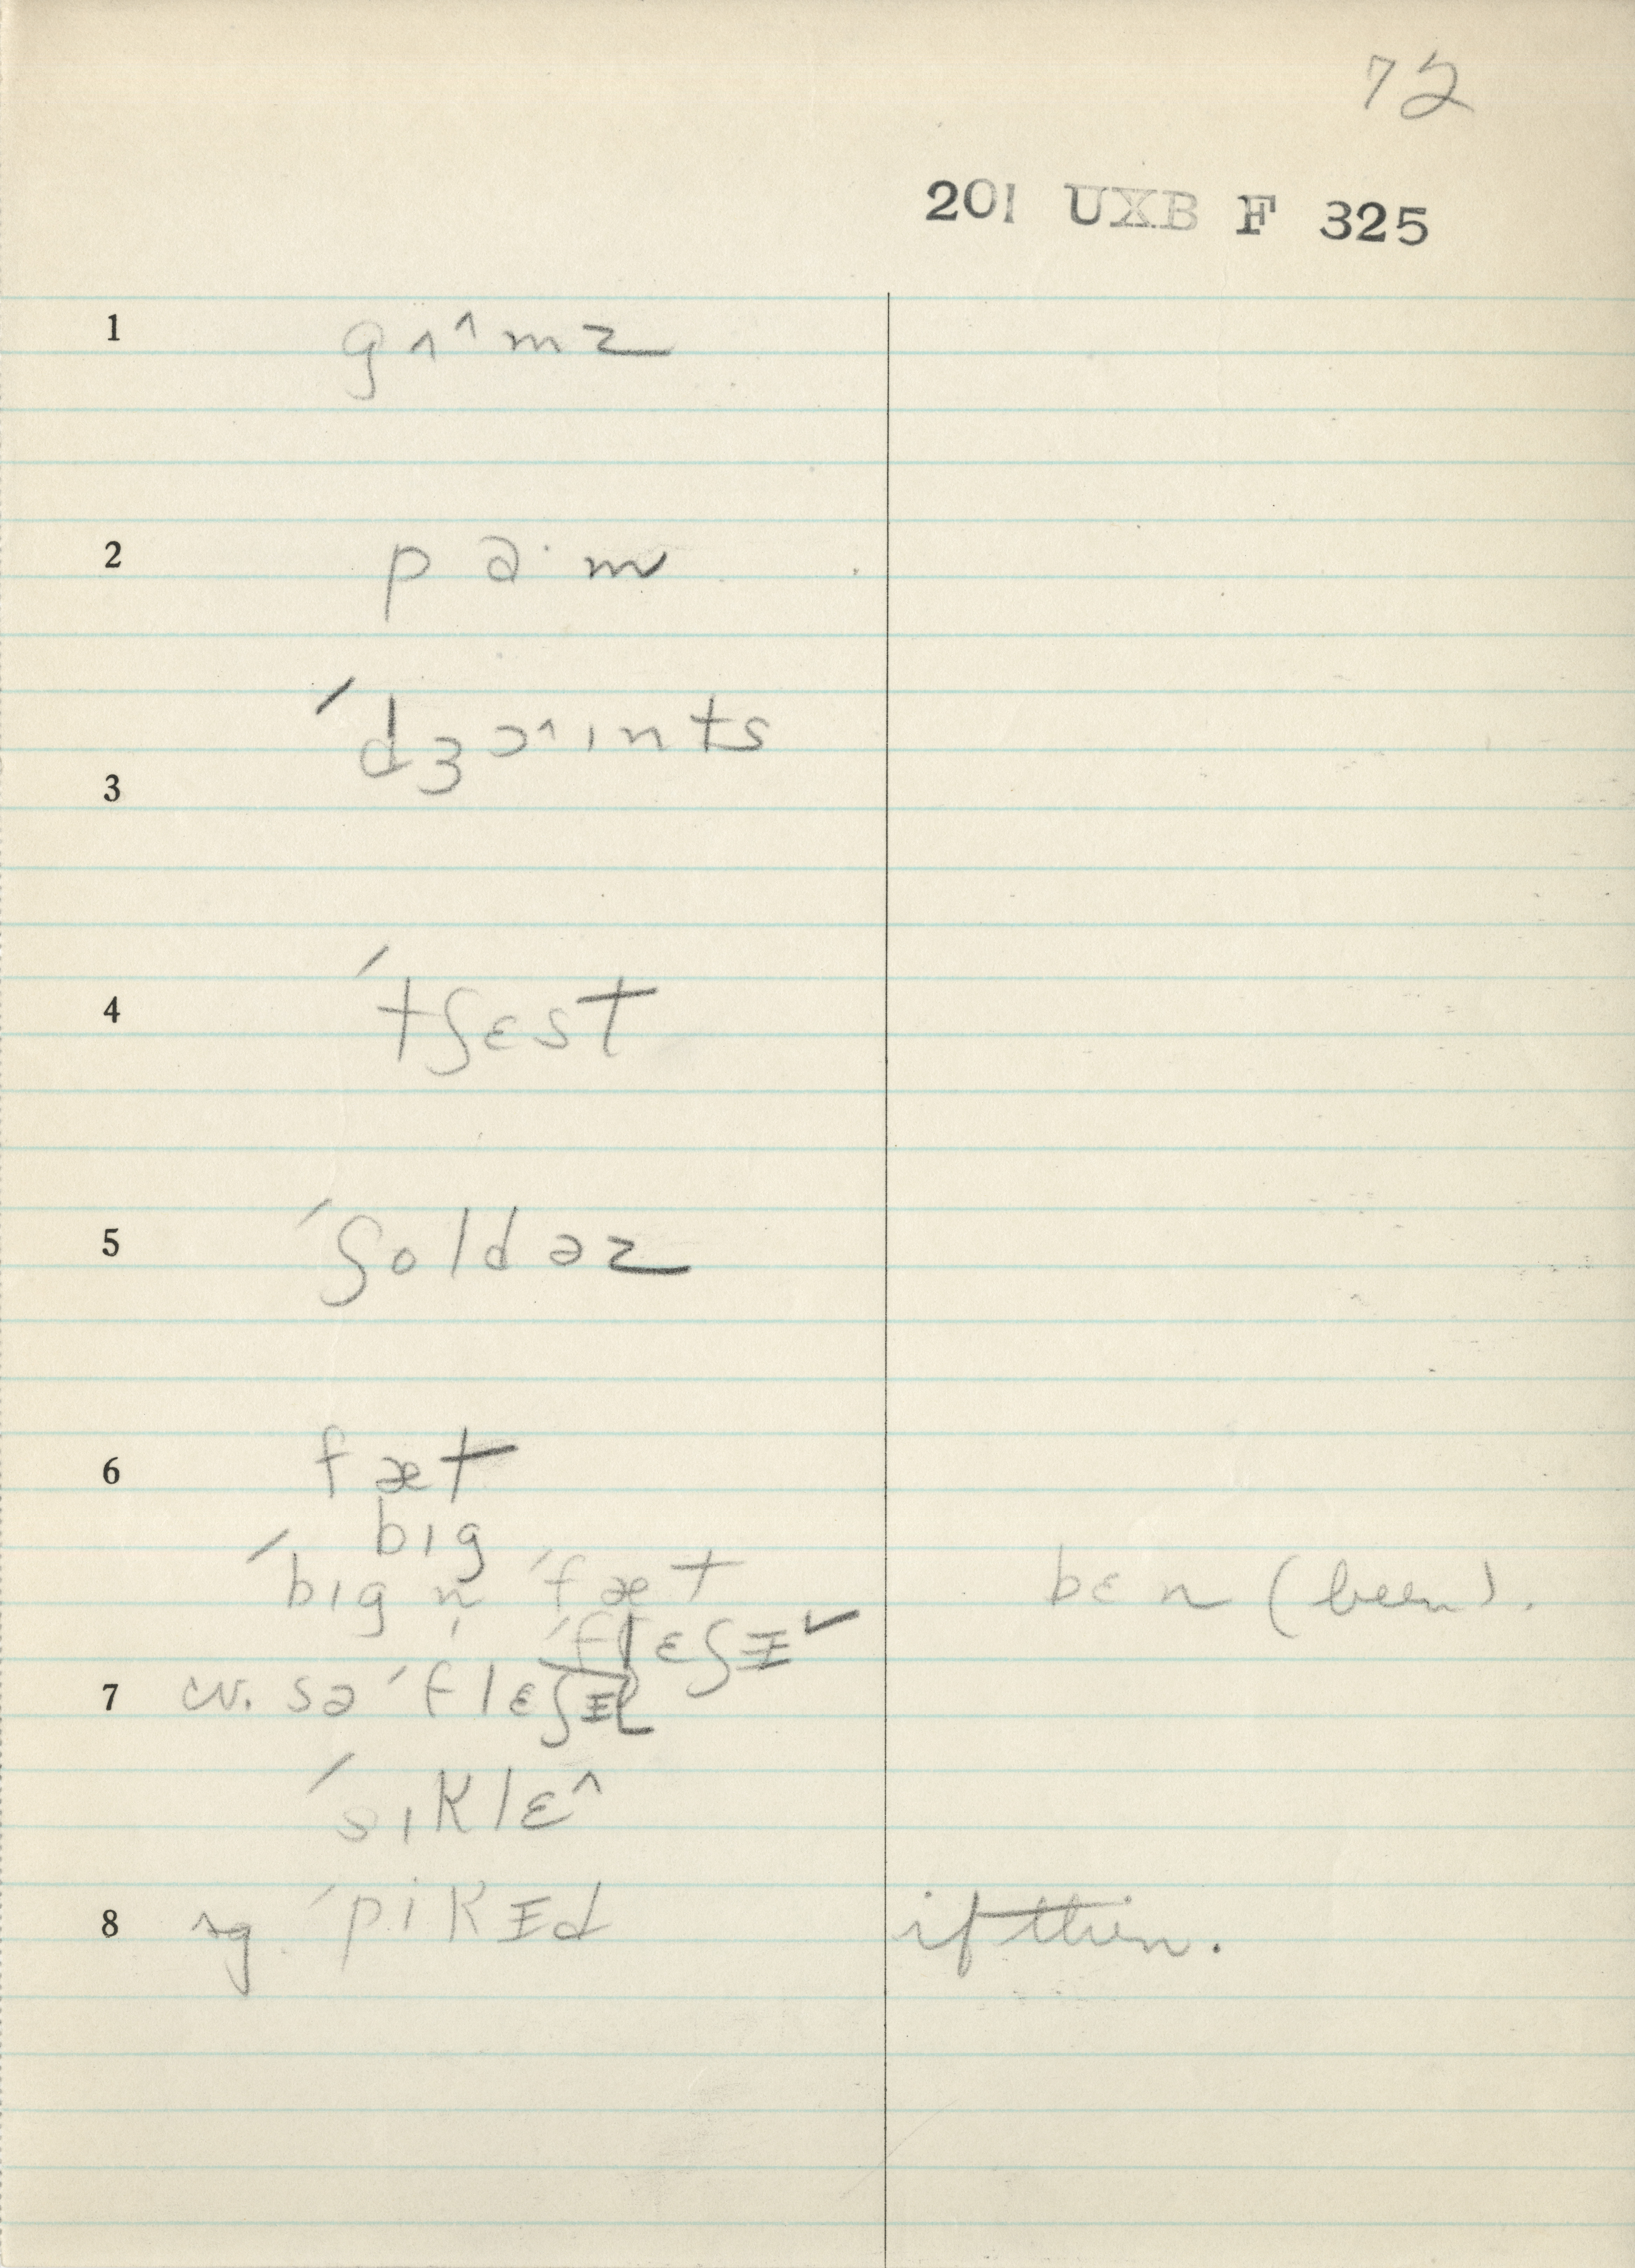 72
201 UXB F 325
1 gʌ˄mz
2 pɑ·m
3 ˊdʒɔ˄ɪnts
4 ˊtʃɛst
5 ˊʃoldəz
6 fæt
bɪg
ˊbɪg n̩ ˊfæt bɛn (been).
ˊflɛʃᵻ ✓
7 cv. sə ˊflɛʃᵻ
ˊsɪklɛ˄
8 sg. ˊpikᵻd if then.